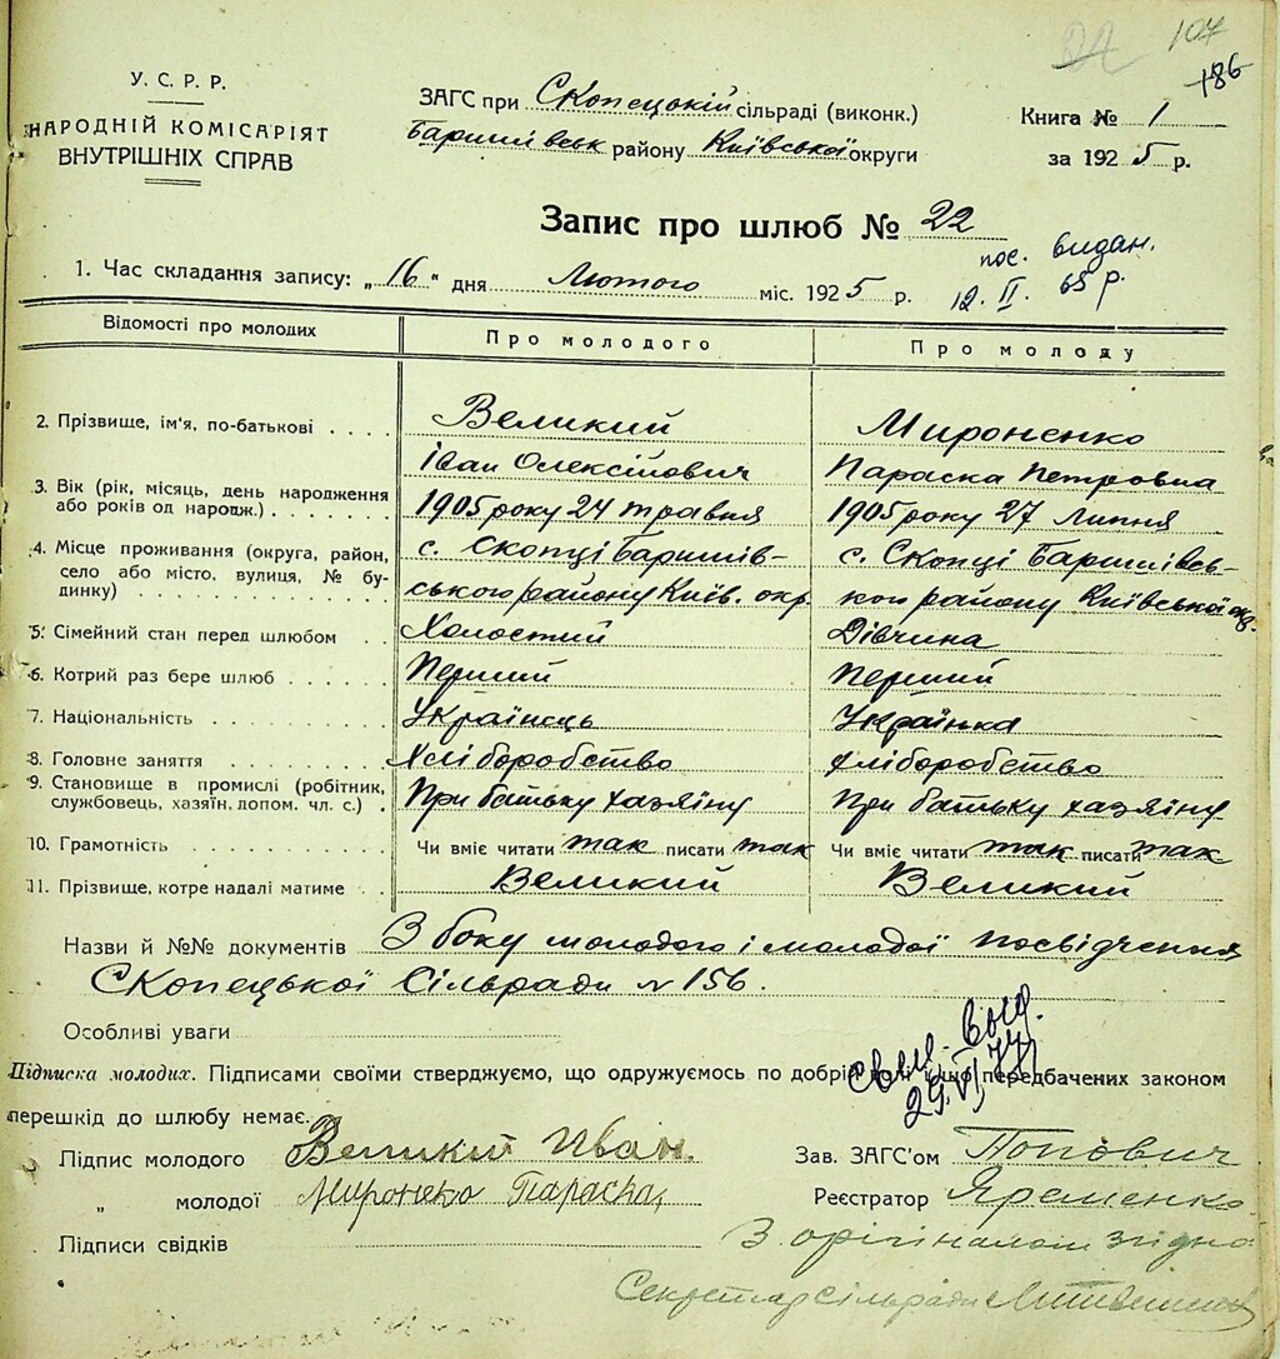 107
186
У. С. Р. Р.
НАРОДНІЙ КОМІСАРІЯТ
ВНУТРІШНІХ СПРАВ
ЗАГС при Скопецокій сільраді (виконк.)
Баришівськ району Київської округи
Книга № 1
за 1925 р.
Запис про шлюб № 22
пос. видан.
12. II. 65 р.
1. Час складання запису: „16" дня Лютого міс. 1925 р.
Відомості про молодих
Про молодого
Про молоду
2. Прізвище, ім'я, по-батькові . . . . Великий Мироненко
Іван Олексійович Параска Петровна
3. Вік (рік, місяць, день народження або років од народж.) . . . . . . . 1905 року 24 травня 1905 року 27 Липня
4. Місце проживання (округа, район, с. Скопці Баришів- с. Скопці Баришівсь-
село або місто, вулиця, № будинку) . . . . . . . . . . . . . ського району Київ. окр. кого району Київської окр.
5. Сімейний стан перед шлюбом . . Холостий Дівчина
6. Котрий раз бере шлюб . . . . . . Перший Перший
7. Національність . . . . . . . . . Українець Українка
8. Головне заняття . . . . . . . . Хліборобство Хліборобство
9. Становище в промислі (робітник,
службовець, хазяїн, допом. чл. с.) . При батьку хазяїну При батьку хазяїну
10. Грамотність . . . . . . . . . . Чи вміє читати так писати так Чи вміє читати так писати так
11. Прізвище, котре надалі матиме . . Великий Великий
Назви й №№ документів З боку молодого і молодої посвідчення
Скопецької Сільради № 156.
Особливі уваги
выд.
29.VI.
Підписка молодих. Підписами своїми стверджуємо, що одружуємось по добрій волі і що передбачених законом
перешкід до шлюбу немає.
Підпис молодого Великий Иван.
Зав. ЗАГС'ом Попович
„ молодої Миронеко Параска
Реєстратор Яременко
Підписи свідків
З орігіналом згідно
Секретар сільради